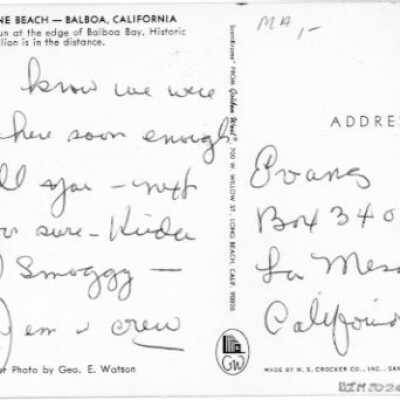 NE BEACH — BALBOA, CALIFORNIA
un at the edge of Balboa Bay. Historic
lion is in the distance.
know we were
here soon enough
ll you - next
sure - Kinda
Smoggy —
em & crew
Photo by Geo. E. Watson
ScenKrome® FROM Golden West® 700 W. WILLOW ST., LONG BEACH, CALIF. 90806
GW
MA,-
ADDRE
Evans
Box 340
La Mesa
California
MADE BY H. S. CROCKER CO., INC., SAN